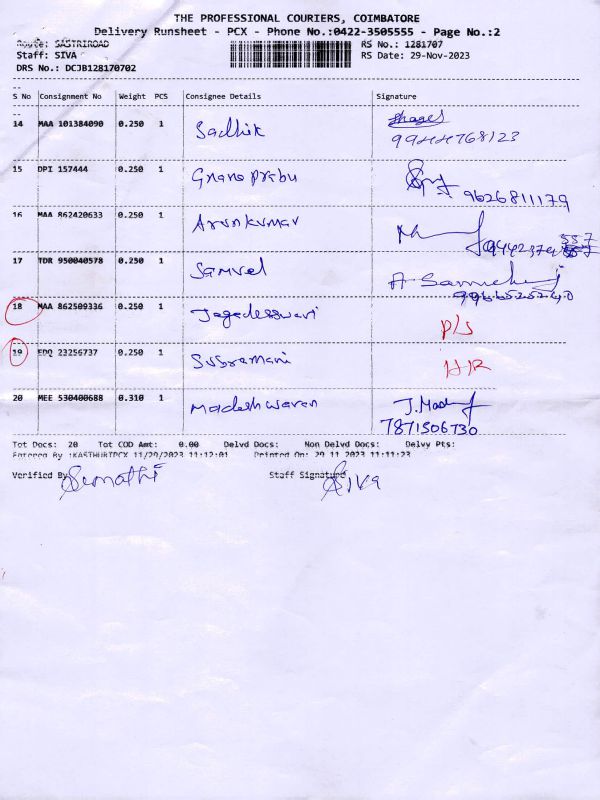 THE PROFESSIONAL COURIERS, COIMBATORE
Delivery Runsheet - PCX - Phone No.:0422-3505555 - Page No.:2
Route: SASTRIROAD RS No.: 1281707
Staff: SIVA RS Date: 29-Nov-2023
DRS No.: DCJB128170702
S No Consignment No Weight PCS Consignee Details Signature
14 MAA 101384090 0.250 1 Sadhik
9944768123
15 DPI 157444 0.250 1 Gnanaprabu 9626811179
16 MAA 862420633 0.250 1 Arunkumar
17 TDR 950040578 0.250 1 Samuel
9966525240
18 MAA 862509336 0.250 1 Jagadeeswari P/S
19 EDQ 23256737 0.250 1 Subramani HR
20 MEE 530400688 0.310 1 Madeshwaran J. Mad
7871506730
Tot Docs: 20 Tot COD Amt: 0.00 Delvd Docs: Non Delvd Docs: Delvy Pts:
Entered By :KASTHURIPCX 11/29/2023 11:12:01 Printed On: 29 11 2023 11:11:23
Verified By Sumathi Staff Signature Siva